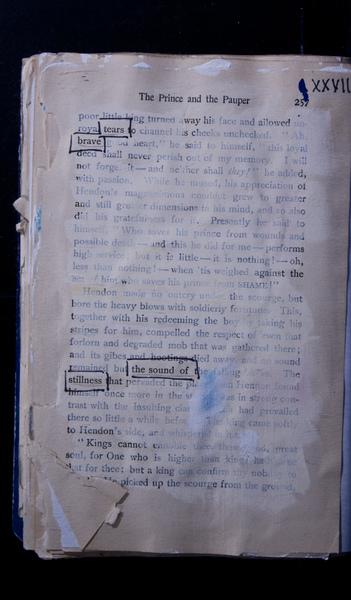 XXVII
The Prince and the Pauper
257
poor little king turned away his face and allowed
royal tears to channel his cheeks unchecked. "Ah,
brave good heart," he said to himself, "this loyal
deed shall never perish out of my memory. I will
not forget it—and neither shall they!" he added,
with passion. While he mused, his appreciation of
Hendon's magnanimous conduct grew to greater
and still greater dimensions in his mind, and so also
did his gratefulness for it. Presently he said to
himself, "Who saves his prince from wounds and
possible death—and this he did for me—performs
high service; but it is little—it is nothing!—oh,
less than nothing!—when 'tis weighed against the
act of him who saves his prince from SHAME!"
Hendon made no outcry under the scourge, but
bore the heavy blows with soldierly fortitude. This,
together with his redeeming the boy by taking his
stripes for him, compelled the respect of even that
forlorn and degraded mob that was gathered there;
and its gibes and hootings died away, and no sound
remained but the sound of the falling blows. The
stillness that pervaded the place when Hendon found
himself once more in the stocks was in strong con-
trast with the insulting clamor which had prevailed
there so little a while before. The king came softly
to Hendon's side, and whispered in his ear:
"Kings cannot ennoble thee, thou good, great
soul, for One who is higher than kings hath done
that for thee; but a king can confirm thy nobility to
He picked up the scourge from the ground,